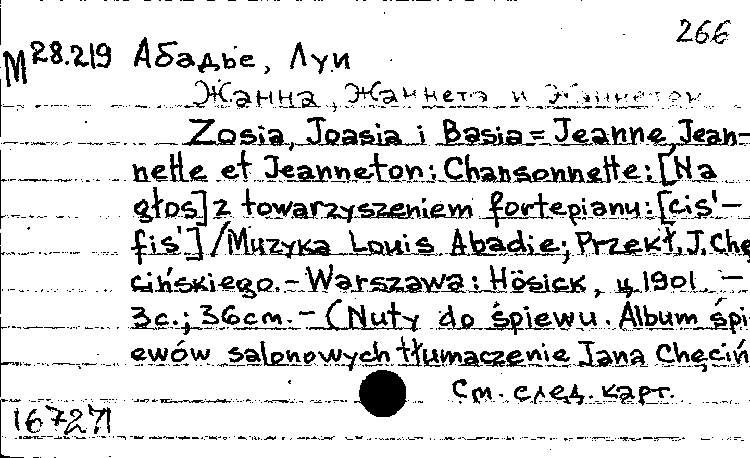 266
М 28.219 Абадье, Луи
Жанна, Жаннета и Жаннетон
Zosia, Joasia i Basia = Jeanne, Jean-
nette et Jeanneton: Chansonnette: [Na
głos] z towarzyszeniem fortepianu: [cis'-
fis'] / Muzyka Louis Abadie; Przekł. J. Chę
cińskiego. - Warszawa: Hösick, ц. 1901. -
3с.; 36cm. - (Nuty do śpiewu. Album śpi
ewów salonowych tłumaczenie Jana Chęciń
См. след. карт.
167271